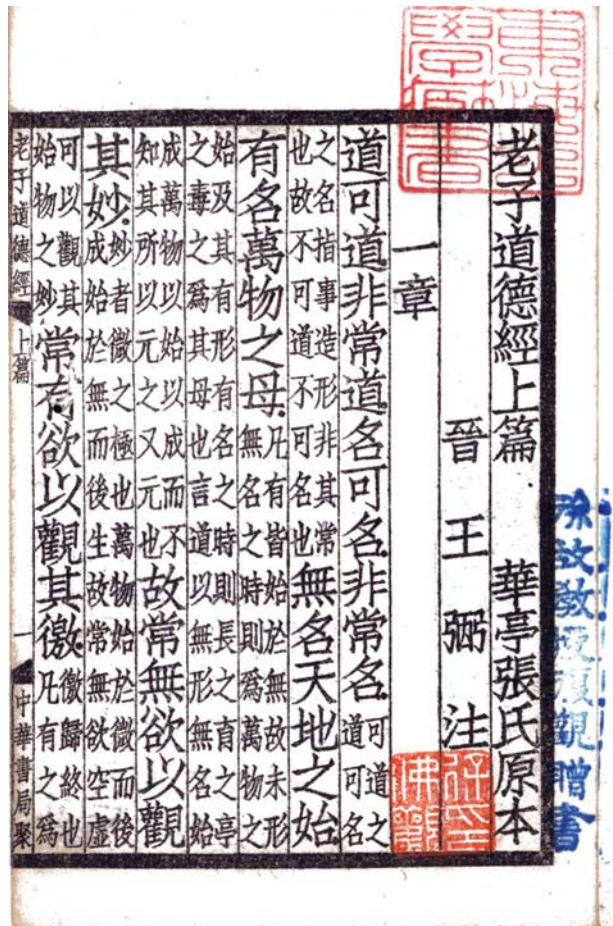 老子道德經上篇　華亭張氏原本
晉王弼注
一章
道可道非常道名可名非常名可道之道可名
之名指事造形非其常也故不可道不可名也無名天地之始
有名萬物之母凡有皆始於無故未形無名之時則爲萬物之
始及其有形有名之時則長之育之亭之毒之爲其母也言道以無形無名始
成萬物以始以成而不知其所以元之又元也故常無欲以觀
其妙妙者微之極也萬物始於微而後成始於無而後生故常無欲空虛
可以觀其始物之妙常有欲以觀其徼徼歸終也凡有之爲
老子道德經 上篇 一 中華書局聚
徐故教授復觀贈書